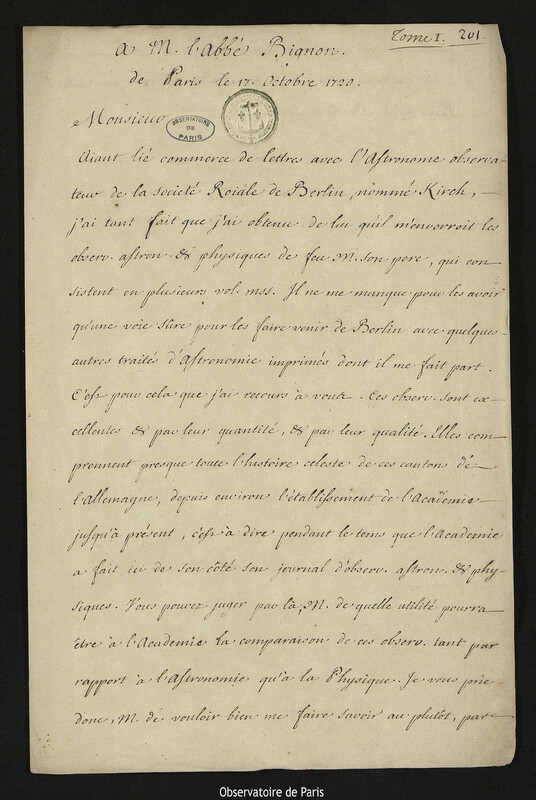 Tome I. 201
A M. l'Abbé Bignon.
de Paris le 17. Octobre 1720.
Monsieur
OBSERVATOIRE
DE
PARIS
Aiant lié commerce de lettres avec l'Astronome observa-
teur de la Societé Roiale de Berlin, nommé Kirch,
j'ai tant fait que j'ai obtenu de lui qu'il m'envorroit les
observ. astron. & physiques de feu M. son pere, qui con
sistent en plusieurs vol. mss. Il ne me manque pour les avoir
qu'une voie sûre pour les faire venir de Berlin avec quelques
autres traités d'Astronomie imprimés dont il me fait part.
C'est pour cela que j'ai recours à vous. Ces observ. sont ex-
cellentes & par leur quantité, & par leur qualité. Elles com
prennent presque toute l'histoire celeste de ces cantons de
l'Allemagne, depuis environ l'établissement de l'Academie
jusqu'à présent, c'est à dire pendant le tems que l'Academie
a fait ici de son côté son journal d'observ. astron. & phy-
siques. Vous pouvez juger par là, M. de quelle utilité pourra
être à l'Academie la comparaison de ces observ. tant par
rapport à l'Astronomie qu'à la Physique. Je vous prie
donc, M. de vouloir bien me faire savoir au plutôt, par
Observatoire de Paris